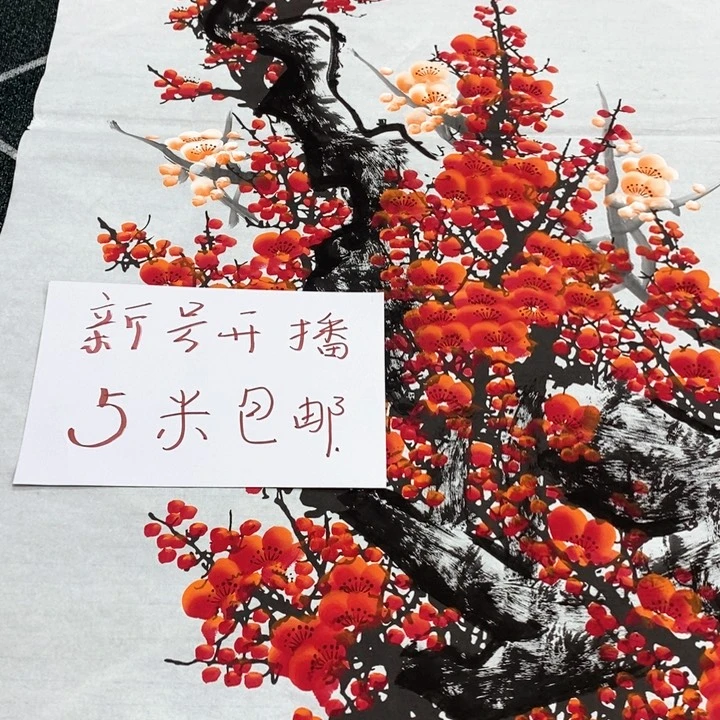 新号开播
5米包邮